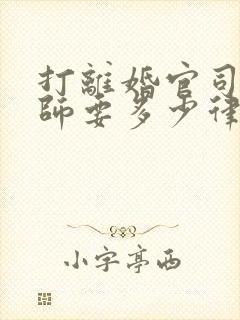 打離婚官司
師要多少律
小字亭西